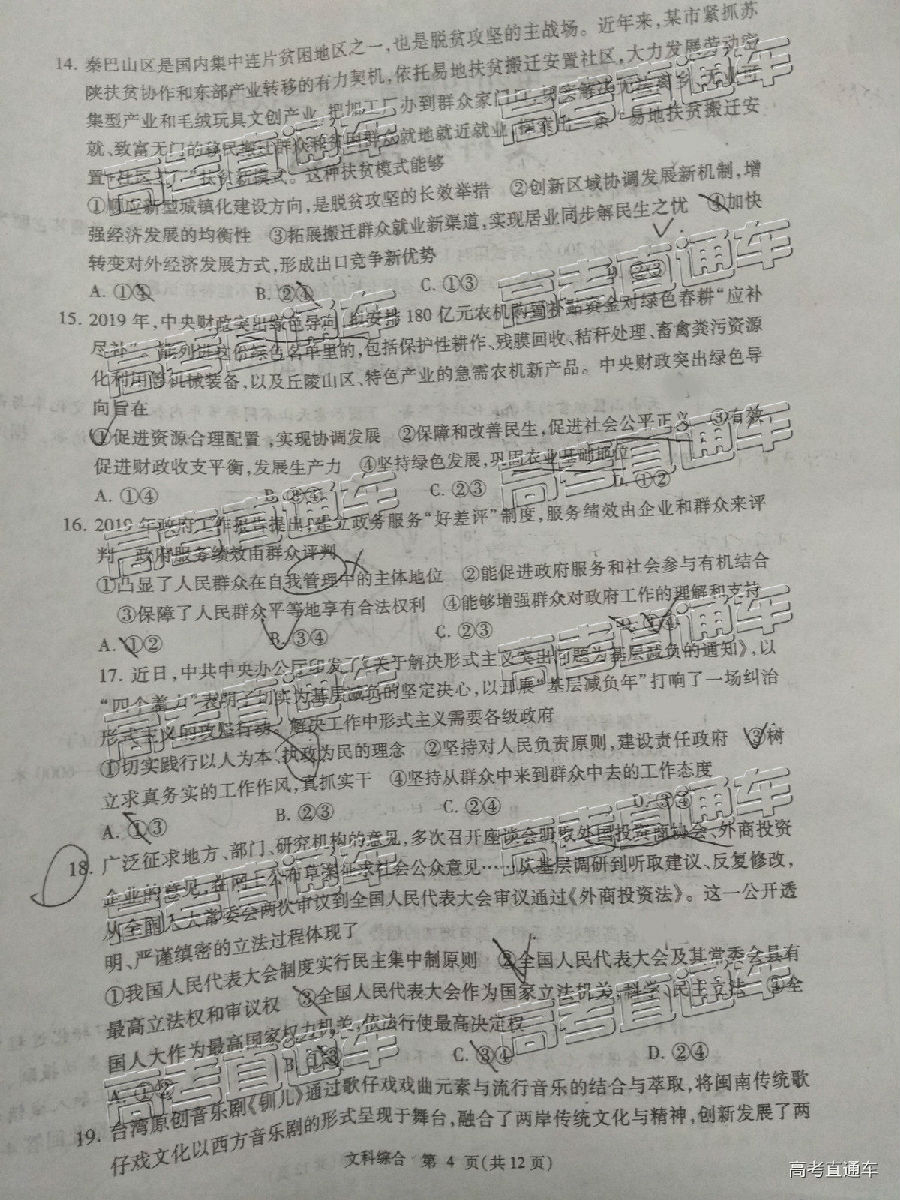 14. 秦巴山区是国内集中连片贫困地区之一,也是脱贫攻坚的主战场。近年来,某市紧抓苏
陕扶贫协作和东部产业转移的有力契机,依托易地扶贫搬迁安置社区,大力发展劳动密
集型产业和毛绒玩具文创产业,把加工厂办到群众家门口,
就、致富无门的移民搬迁群众和贫困群众就地就近就业,探索出一条"易地扶贫搬迁安
置+社区工厂"扶贫新模式。这种扶贫模式能够
①顺应新型城镇化建设方向,是脱贫攻坚的长效举措 ②创新区域协调发展新机制,增
强经济发展的均衡性 ③拓展搬迁群众就业新渠道,实现居业同步解民生之忧 ④加快
转变对外经济发展方式,形成出口竞争新优势
A. ①④ B. ②④ C. ①③ D. ②③
15. 2019 年,中央财政突出绿色导向,安排 180 亿元农机购置补贴资金对绿色春耕"应补
尽补"。能列进这份绿色名单里的,包括保护性耕作、残膜回收、秸秆处理、畜禽粪污资源
化利用等机械装备,以及丘陵山区、特色产业的急需农机新产品。中央财政突出绿色导
向旨在
①促进资源合理配置,实现协调发展 ②保障和改善民生,促进社会公平正义 ③有效
促进财政收支平衡,发展生产力 ④坚持绿色发展,巩固农业基础地位
A. ①④ B. ③④ C. ②③ D. ①②
16. 2019 年政府工作报告提出,建立政务服务"好差评"制度,服务绩效由企业和群众来评
判。政府服务绩效由群众评判
①凸显了人民群众在自我管理中的主体地位 ②能促进政府服务和社会参与有机结合
③保障了人民群众平等地享有合法权利 ④能够增强群众对政府工作的理解和支持
A. ①② B. ③④ C. ②③ D. ②④
17. 近日,中共中央办公厅印发了《关于解决形式主义突出问题为基层减负的通知》,以
"四个着力"表明了切实为基层减负的坚定决心,以开展"基层减负年"打响了一场纠治
形式主义的攻坚行动。解决工作中形式主义需要各级政府
①切实践行以人为本、执政为民的理念 ②坚持对人民负责原则,建设责任政府 ③树
立求真务实的工作作风,真抓实干 ④坚持从群众中来到群众中去的工作态度
A. ①③ B. ②③ C. ②④ D. ③④
18. 广泛征求地方、部门、研究机构的意见,多次召开座谈会听取外国投资商协会、外商投资
企业的意见,在网上公布草案征求社会公众意见……从基层调研到听取建议、反复修改,
从全国人大常委会两次审议到全国人民代表大会审议通过《外商投资法》。这一公开透
明、严谨缜密的立法过程体现了
①我国人民代表大会制度实行民主集中制原则 ②全国人民代表大会及其常委会具有
最高立法权和审议权 ③全国人民代表大会作为国家立法机关,科学、民主立法 ④全
国人大作为最高国家权力机关,依法行使最高决定权
A. ①② B. ①③ C. ③④ D. ②④
19. 台湾原创音乐剧《钏儿》通过歌仔戏戏曲元素与流行音乐的结合与萃取,将闽南传统歌
仔戏文化以西方音乐剧的形式呈现于舞台,融合了两岸传统文化与精神,创新发展了两
文科综合 第 4 页(共 12 页)
高考直通车